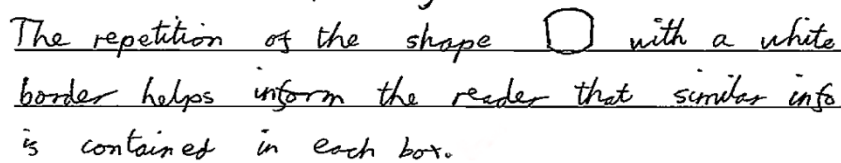 The repetition of the shape with a white
border helps inform the reader that similar info
is contained in each box.